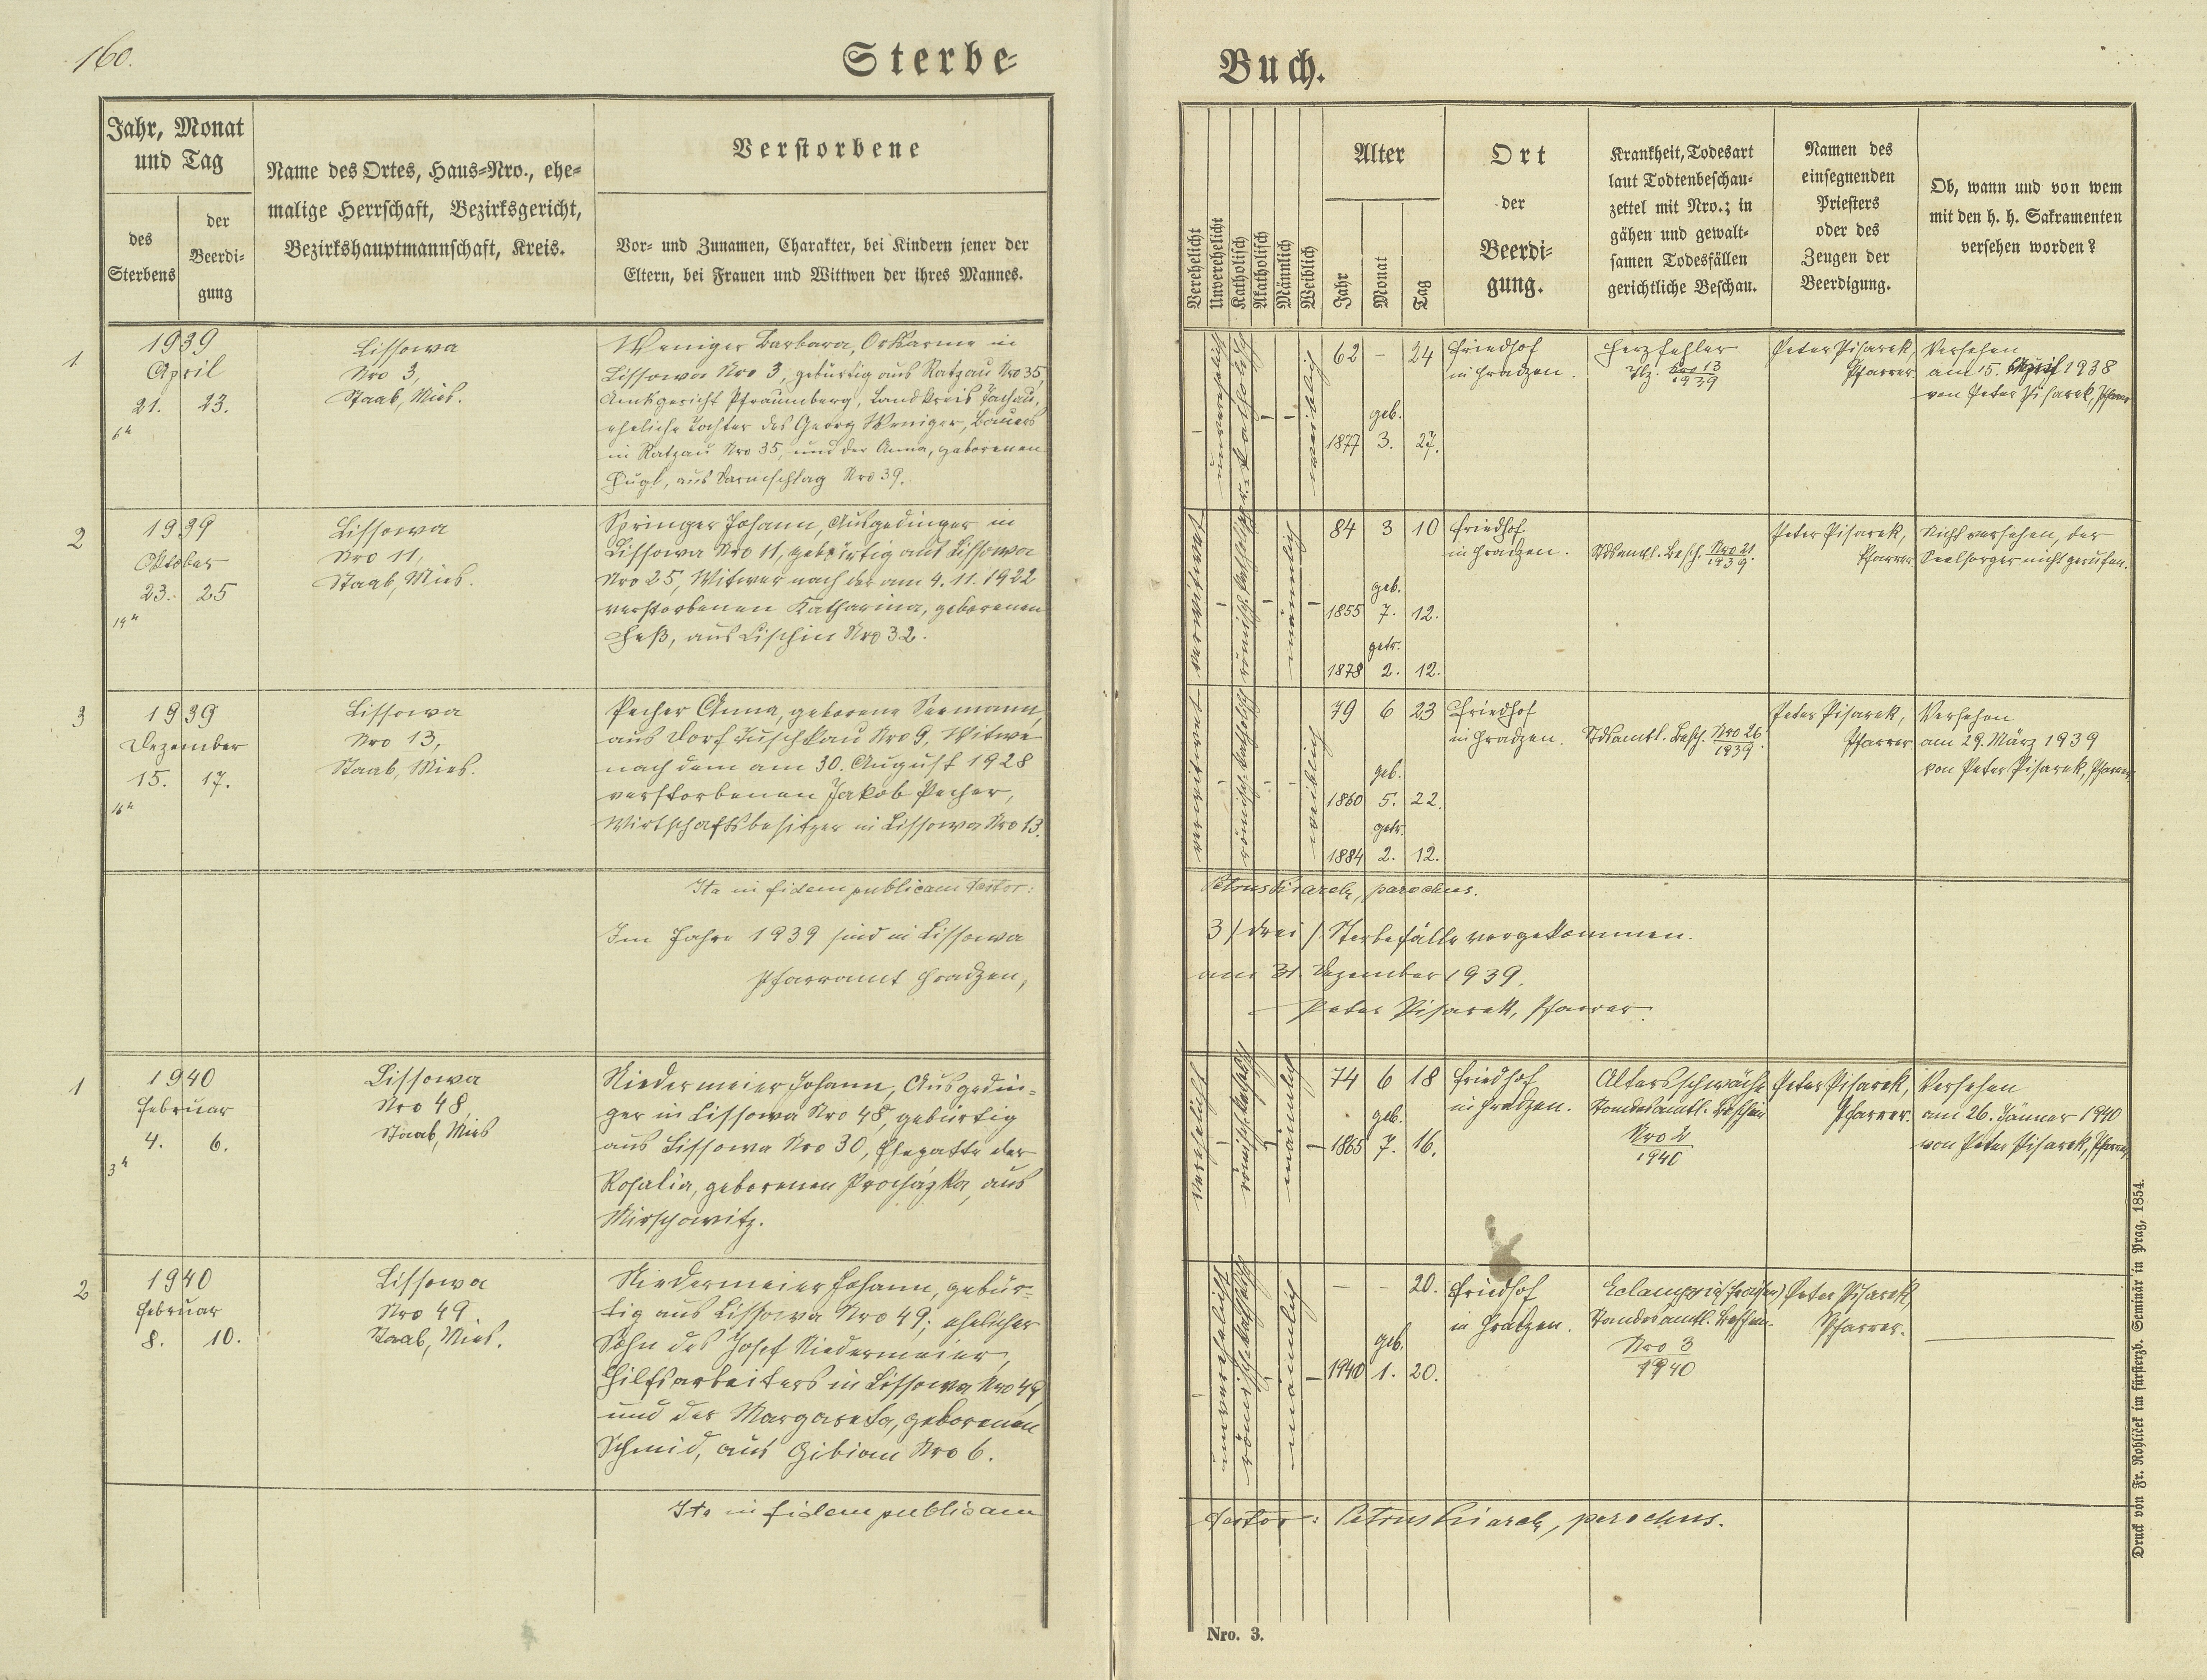 160.
Sterbe-
Buch.
Jahr, Monat
und Tag
des
Sterbens
der
Beerdi-
gung
Name des Ortes, Haus-Nro., ehe-
malige Herrschaft, Bezirksgericht,
Bezirkshauptmannschaft, Kreis.
Verstorbene
Vor- und Zunamen, Charakter, bei Kindern jener der
Eltern, bei Frauen und Wittwen der ihres Mannes.
Verehelicht
Unverehelicht
Katholisch
Akatholisch
Männlich
Weiblich
Alter
Jahr
Monat
Tag
Ort
der
Beerdi-
gung.
Krankheit, Todesart
laut Todtenbeschau-
zettel mit Nro.; in
gähen und gewalt-
samen Todesfällen
gerichtliche Beschau.
Namen des
einsegnenden
Priesters
oder des
Zeugen der
Beerdigung.
Ob, wann und von wem
mit den h. h. Sakramenten
versehen worden?
1
1939
April
21. 23.
6h
Lissowa
Nro 3,
Staab, Mies.
Weniger Barbara, Ortsarme in
Lissowa Nro 3, gebürtig aus Ratzau Nro 35,
Amtsgericht Pfraumberg, Landkreis Tachau,
eheliche Tochter des Georg Weniger, Bauers
in Ratzau Nro 35, und der Anna, geborenen
aus Darmschlag Nro 39.
unverehelicht
r. katholisch
weiblich
62 – 24
geb.
1877 3. 27.
Friedhof
in Hradzen.
Herzfehler
Nro 13
1939
Peter Pisarek,
Pfarrer
Versehen
am 15. April 1938
von Peter Pisarek, Pfarrer
2
1939
Oktober
23. 25
19h
Lissowa
Nro 11,
Staab, Mies.
Springer Johann, Ausgedinger in
Lissowa Nro 11, gebürtig aus Lissowa
Nro 25, Witwer nach der am 4. 11. 1922
verstorbenen Katharina, geborenen
Heß, aus Lischin Nro 32.
verwitwet
römisch-katholisch
männlich
84 3 10
geb.
1855 7. 12.
getr.
1878 2. 12.
Friedhof
in Hradzen.
Stdsamtl. Besch. Nro 21
1939.
Peter Pisarek,
Pfarrer
Nicht versehen, der
Seelsorger nicht gerufen.
3
1939
Dezember
15. 17.
16h
Lissowa
Nro 13,
Staab, Mies.
Pecher Anna, geborene Seemann,
aus Dorf Tuschkau Nro 9, Witwe
nach dem am 30. August 1928
verstorbenen Jakob Pecher,
Wirtschaftsbesitzer in Lissowa Nro 13.
verwitwet
römisch-katholisch
weiblich
79 6 23
geb.
1860 5. 22.
getr.
1884 2. 12.
Friedhof
in Hradzen.
Stdsamtl. Besch. Nro 26
1939.
Peter Pisarek,
Pfarrer
Versehen
am 29. März 1939
von Peter Pisarek, Pfarrer
Ita in fidem publicam testor: Petrus Pisarek, parochus.
Im Jahre 1939 sind in Lissowa 3 /drei/ Sterbefälle vorgekommen.
Pfarramt Hradzen, am 31. Dezember 1939.
Peter Pisarek, Pfarrer.
1
1940
Februar
4. 6.
3h
Lissowa
Nro 48,
Staab, Mies
Niedermeier Johann, Ausgedin-
ger in Lissowa Nro 48, gebürtig
aus Lissowa Nro 30, Ehegatte der
Rosalia, geborenen Procházka, aus
Mirschowitz.
verehelicht
römisch-katholisch
männlich
74 6 18
geb.
1865 7. 16.
Friedhof
in Hradzen.
Altersschwäche
Standesamtl. Beschein
Nro 2
1940
Peter Pisarek,
Pfarrer.
Versehen
am 26. Jänner 1940
von Peter Pisarek, Pfarrer
2
1940
Februar
8. 10.
Lissowa
Nro 49
Staab, Mies.
Niedermeier Johann, gebür-
tig aus Lissowa Nro 49; ehelicher
Sohn des Josef Niedermeier,
Hilfsarbeiters in Lissowa Nro 49,
und der Margareta, geborenen
Schmid, aus Gibian Nro 6.
unverehelicht
römisch-katholisch
männlich
– – 20.
geb.
1940 1. 20.
Friedhof
in Hradzen.
Eclampsie (Fraisen)
Standesamtl. Beschein.
Nro 3
1940
Peter Pisarek,
Pfarrer.
Ita in fidem publicam testor: Petrus Pisarek, parochus.
Nro. 3.
Druck von Fr. Rohliček im fürsterzb. Seminär in Prag, 1854.